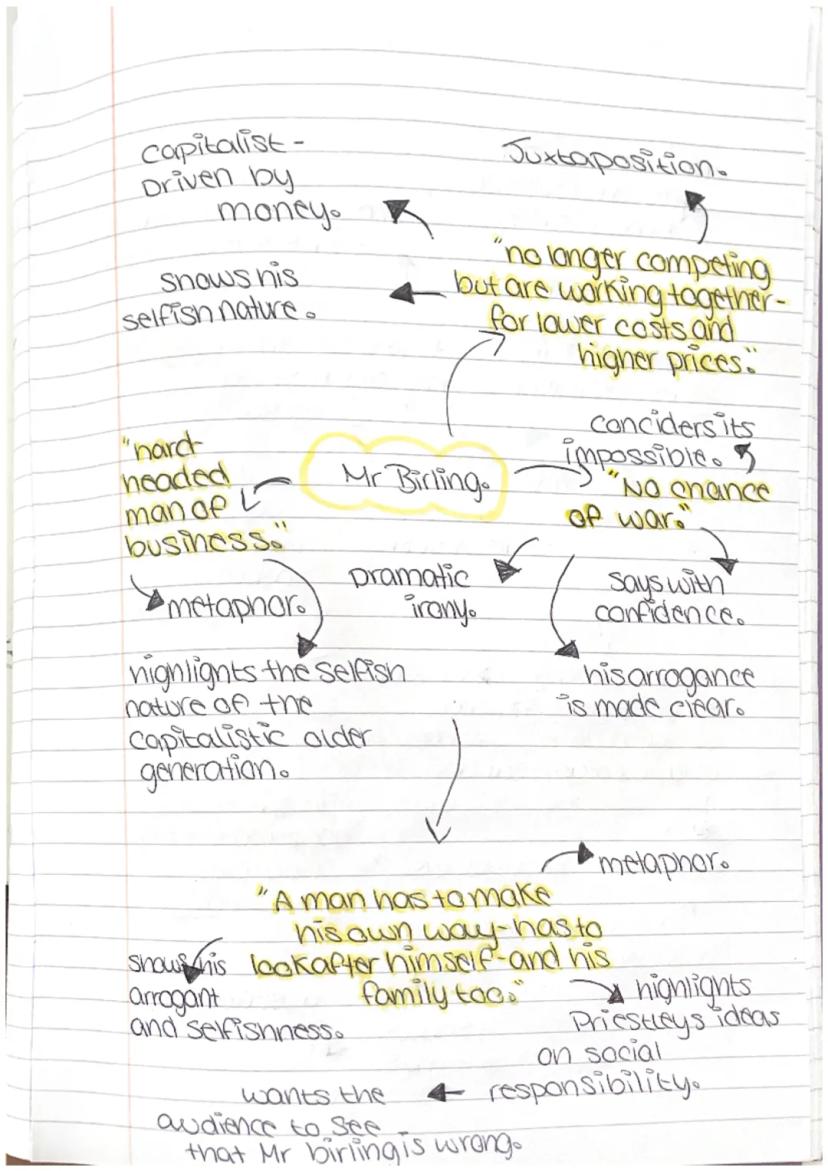 Capitalist -
Driven by
money.
Juxtaposition.
"no longer competing
but are working together-
for lower costs and
higher prices."
shows his
selfish nature.
conciders its
impossible.
"No chance
of war."
Mr Birling.
"hard-
headed
man of
business."
Dramatic
irony.
says with
confidence.
metaphor.
his arrogance
is made clear.
highlights the selfish
nature of the
capitalistic older
generation.
metaphor.
"A man has to make
his own way-has to
look after himself-and his
family too."
shows his
arrogant
and selfishness.
highlights
Priestleys ideas
on social
responsibility.
wants the
audience to see
that Mr birling is wrong.